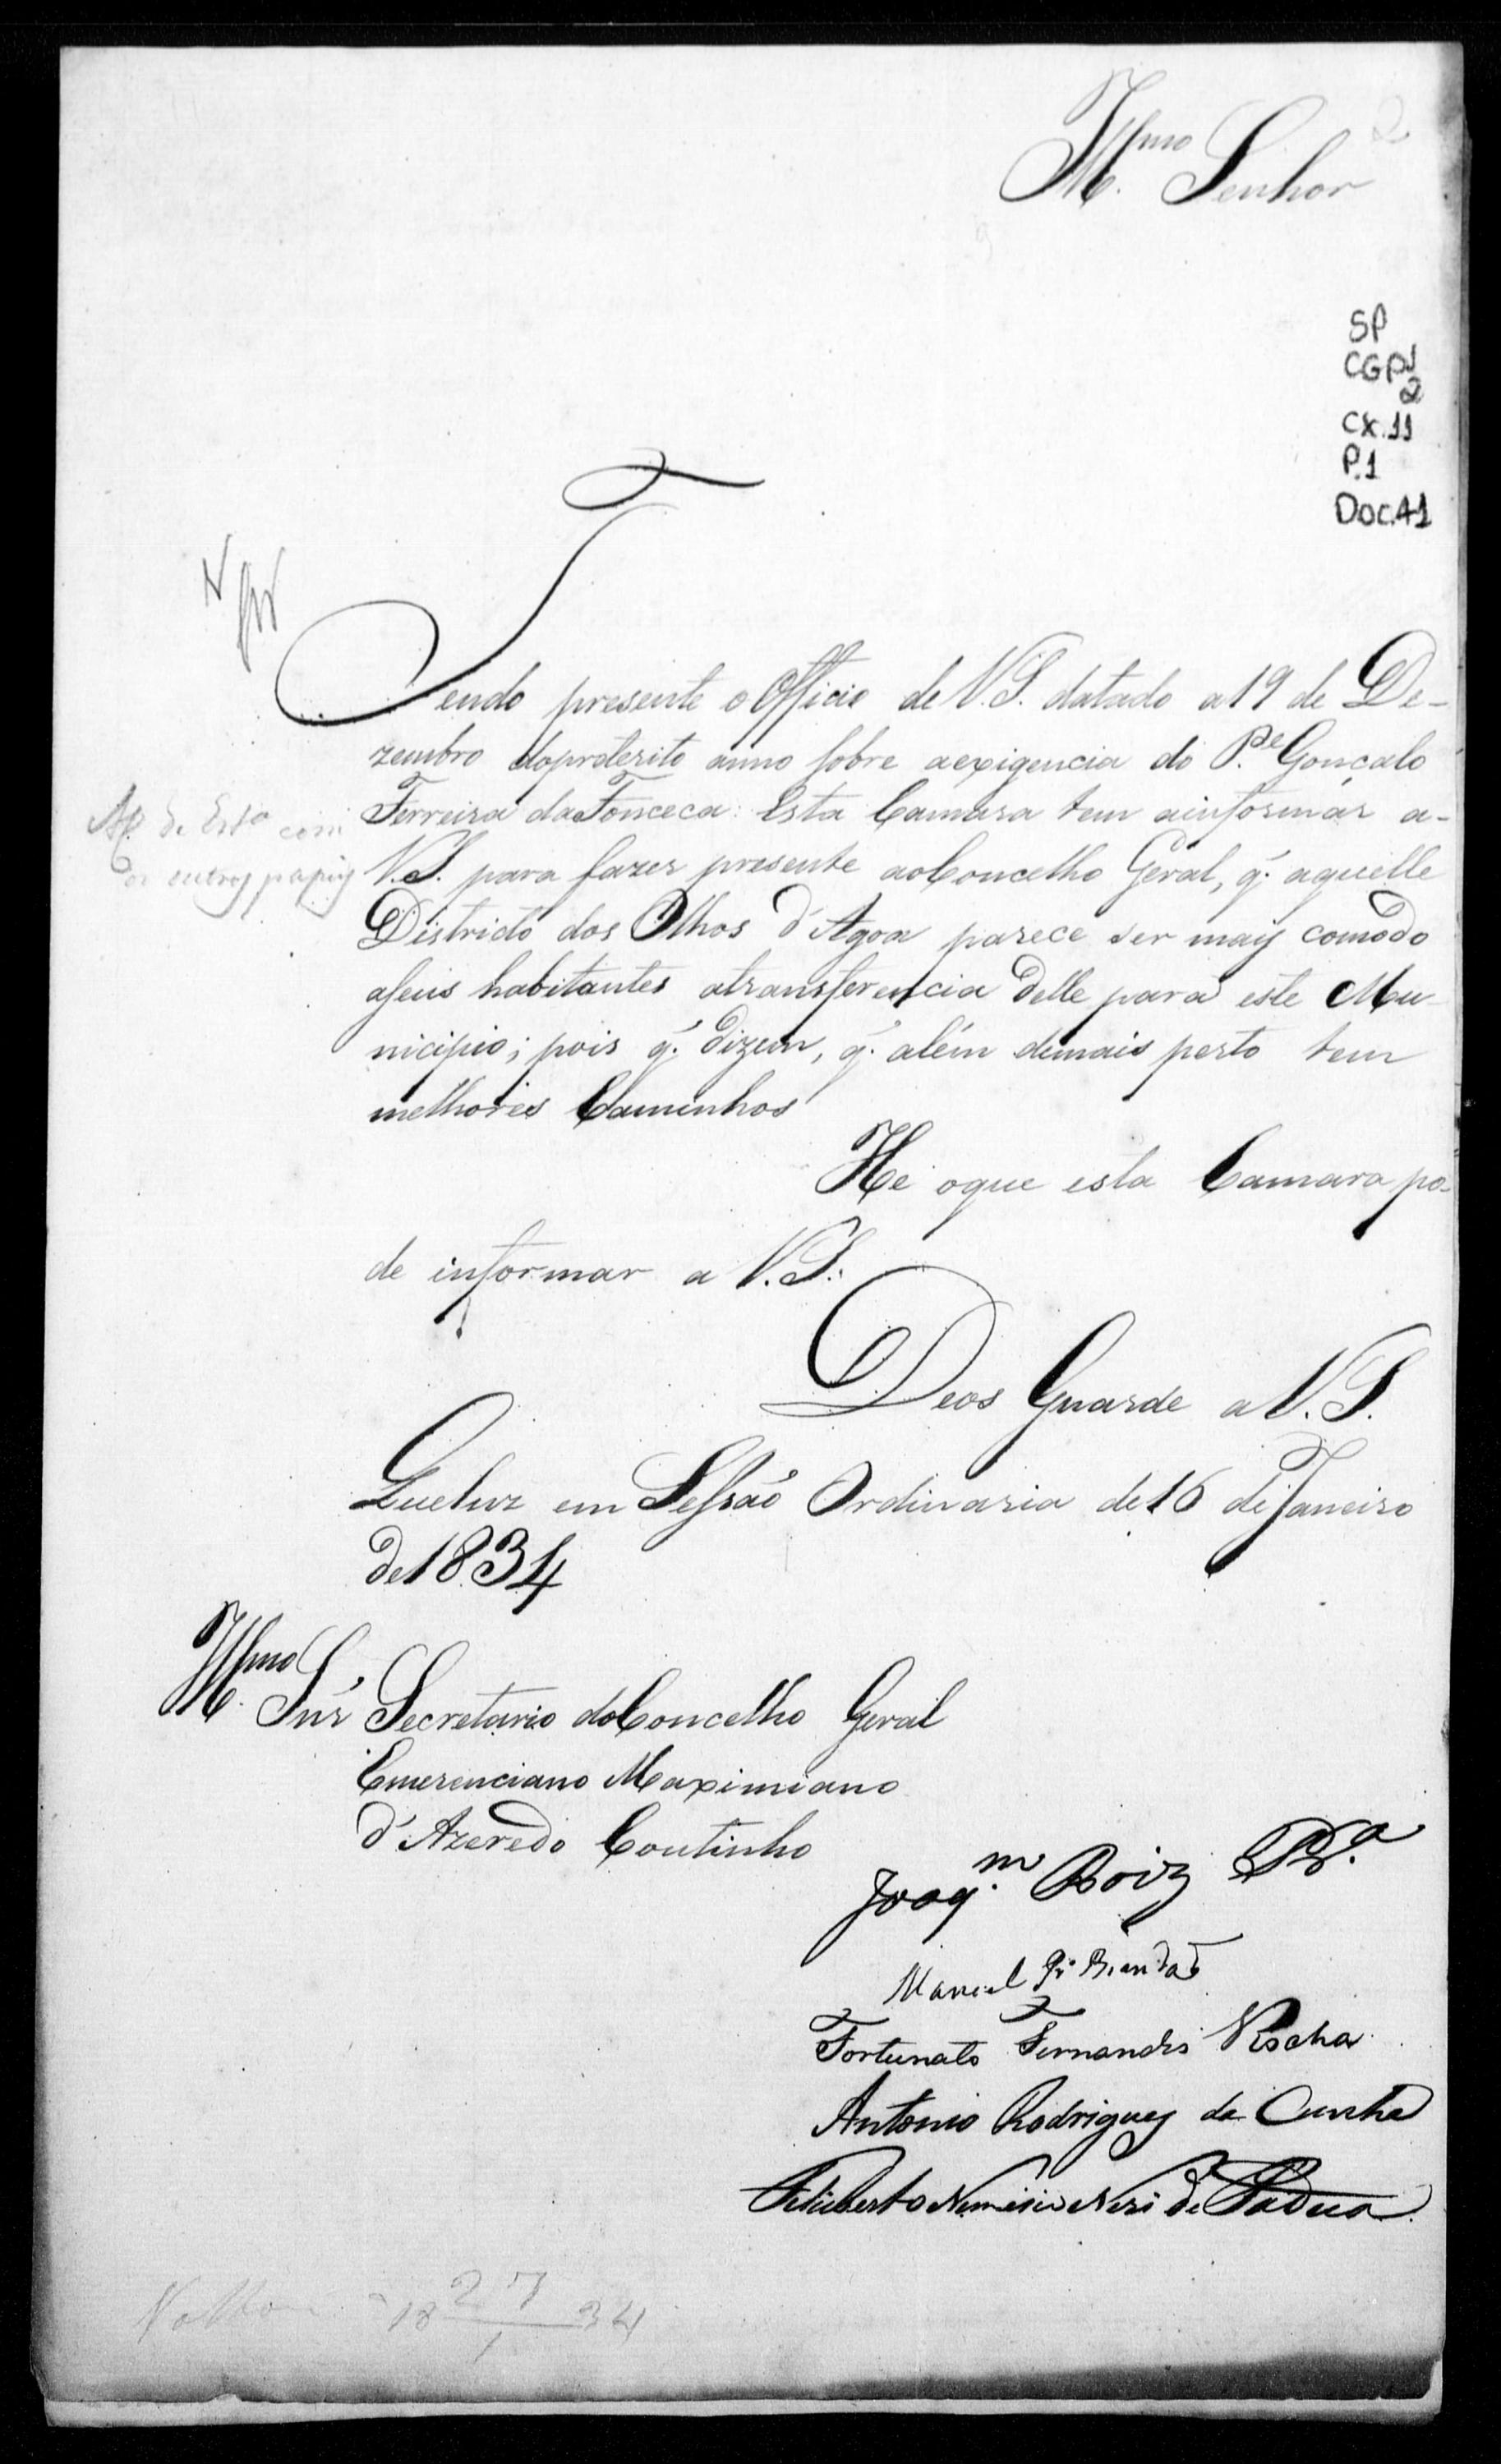 Illmo. Senhor
2
SP
CGP1
2
CX.11
P.1
Doc.41
Tendo presente o Officio de V.S. datado a 19 de De-
zembro do preterito anno sobre a exigencia do Pe. Gonçalo
Ferreira da Fonceca: Esta Camara tem a informar a-
V.S. para fazer presente ao Concelho Geral, q̃. aquelle
Districto dos Olhos d'Agoa parece ser mais comodo
a seus habitantes a transferencia delle para este Mu-
nicipio; pois q̃. dizem, q̃. além de mais perto tem
melhores Caminhos
He o que esta Camara po-
de informar a V.S.:
Deos Guarde a V.S.
Queluz em Sessão Ordinaria de 16 de Janeiro
de 1834
com
os outros papeis
Illmo. Snr. Secretario do Concelho Geral
Emerenciano Maximiano
d'Azeredo Coutinho
Joaqm. Roiz Pra.
Manoel Brandão
Fortunato Fernandes Rocha
Antonio Rodrigues da Cunha
Filisberto Nemésio Neri de Padua
18 27/1 34